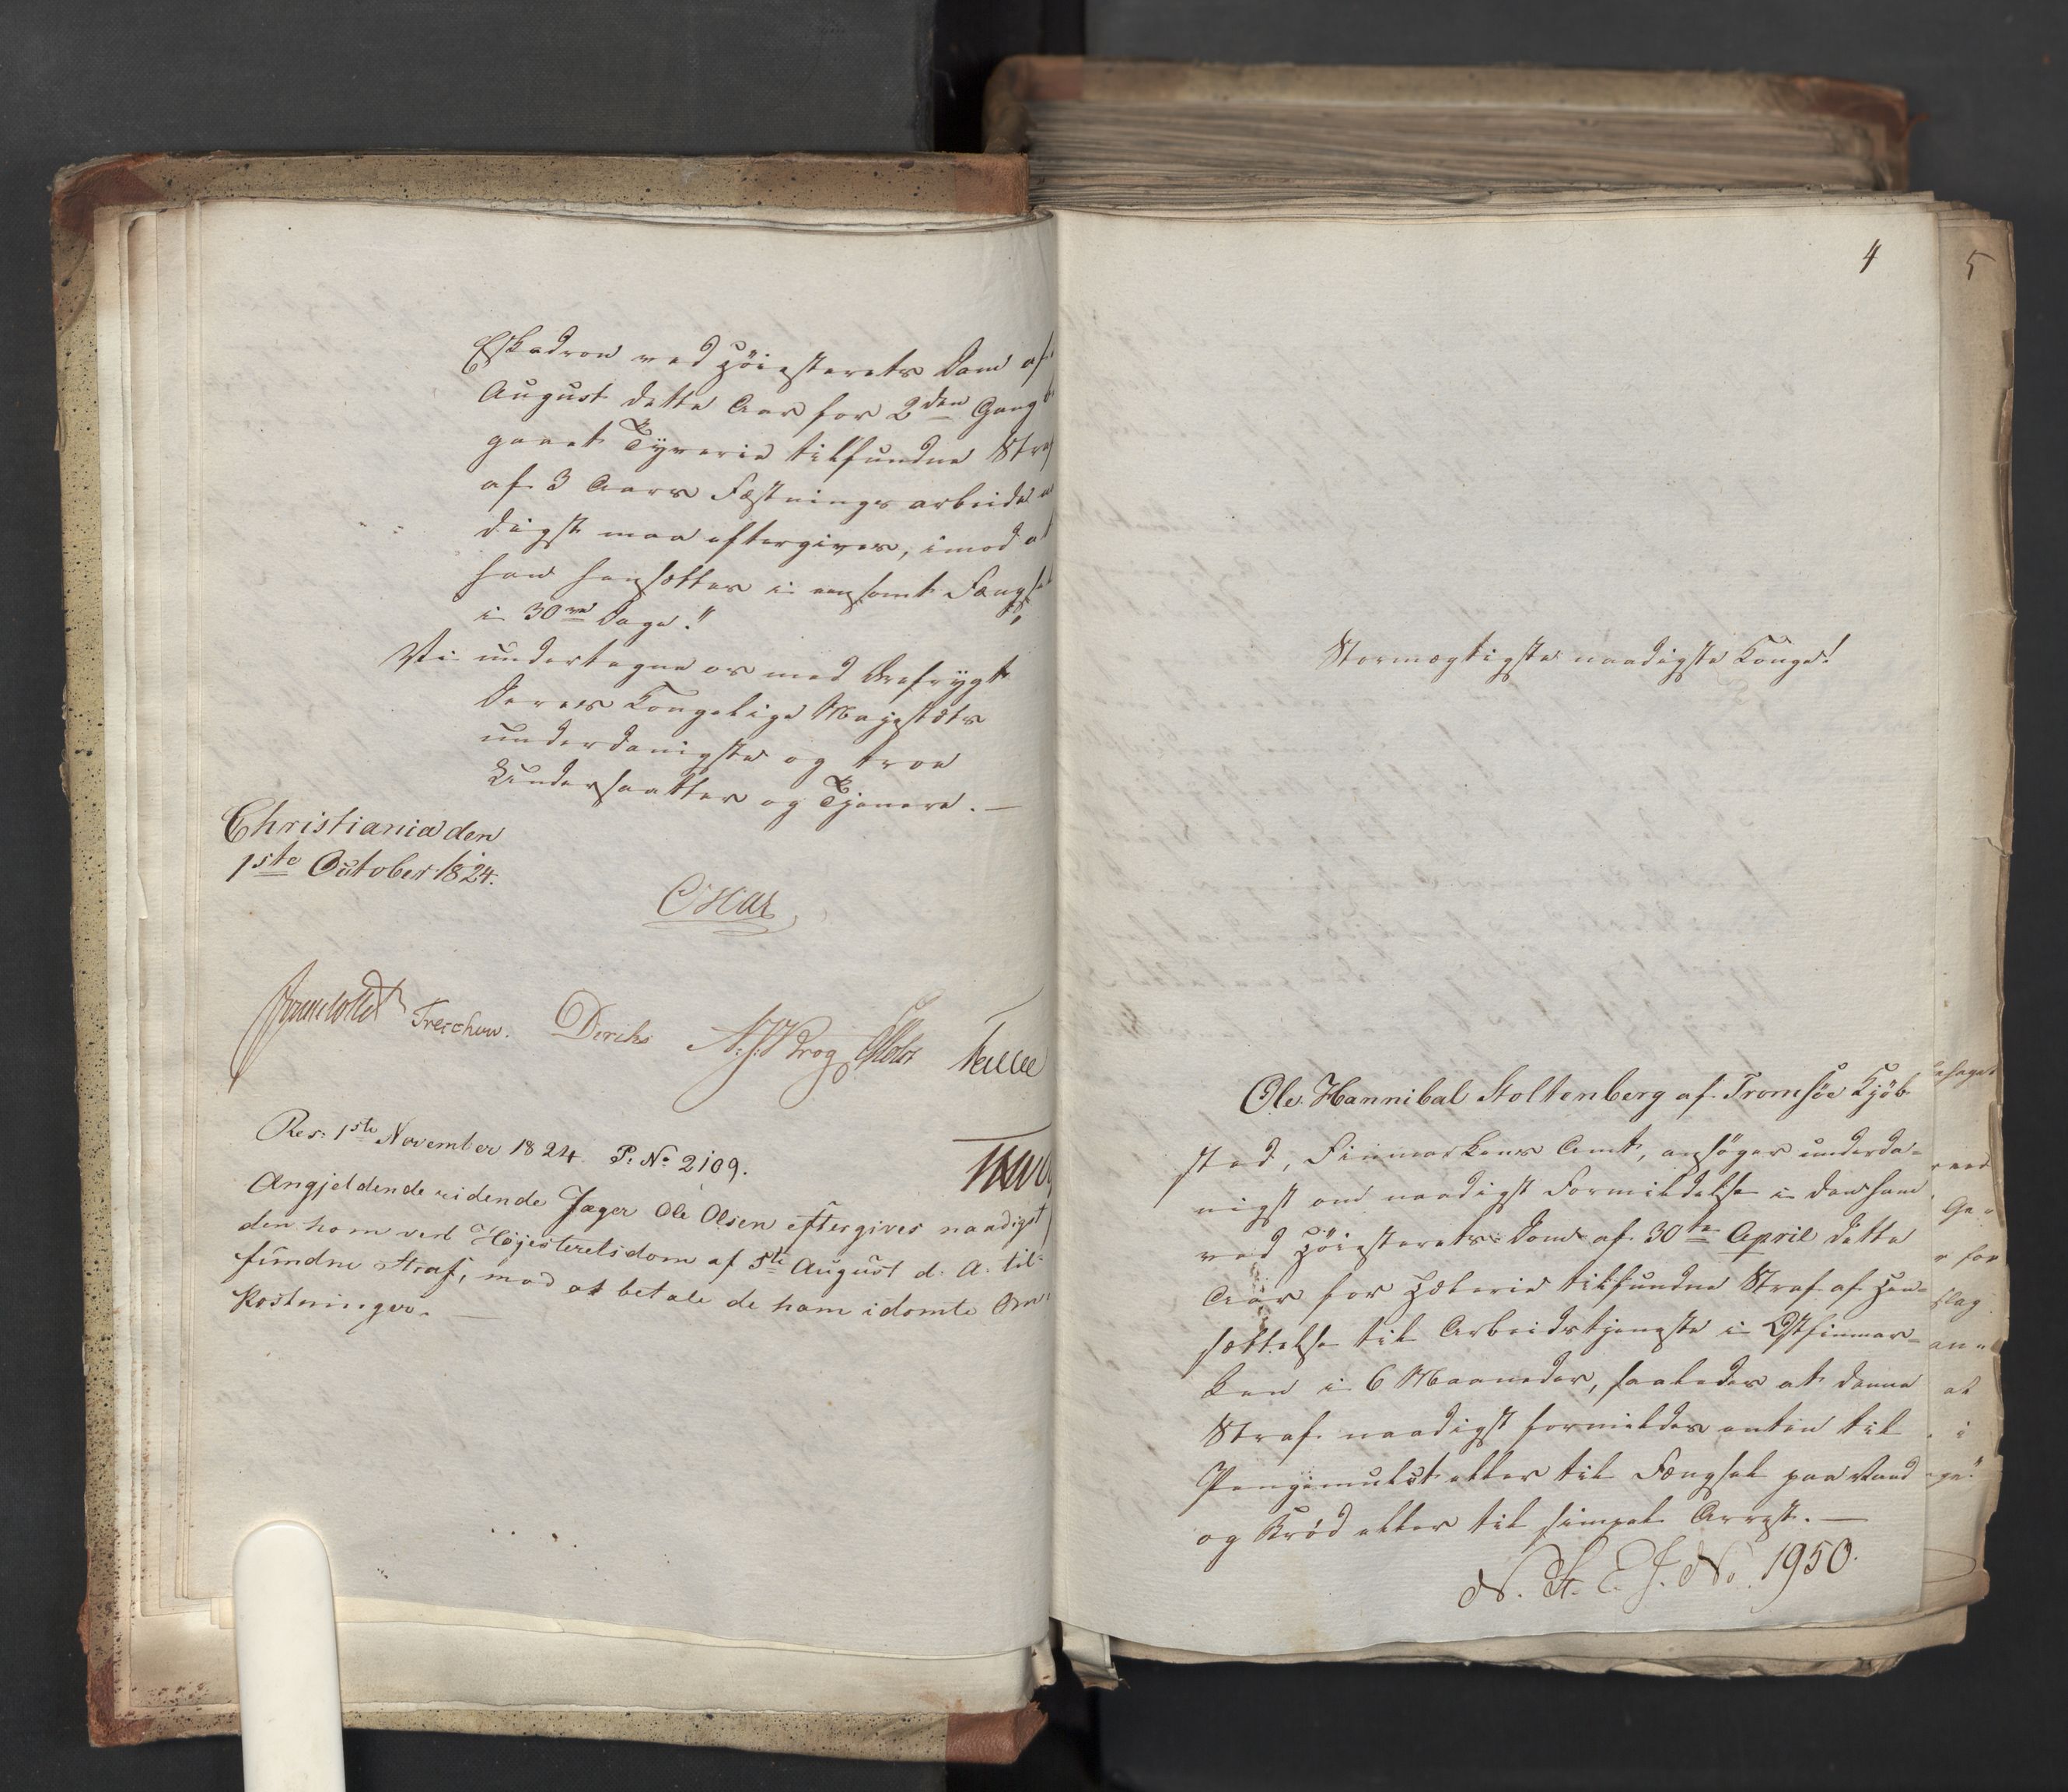 Eskadron ved Höiesterets Dom af
August dette Aar for 2den Gang
gaaet Tyverie tilfundne Straf
af 3 Aars Fæstningsarbeide
digst maa eftergives, imod at
han hensættes i eensomt Fængsel
i 30ve Dage."
Vi undertegne os med Ærefrygt
Deres Kongelige Majestæts
underdanigste og troe
Undersaatter og Tjenere. —
Christiania den
1ste October 1824.
Oscar
Treschow. Diriks
Res: 1ste November 1824. P: No 2109.
Angjeldende ridende Jæger Ole Olsen eftergives naadigst
den ham ved Højesteretsdom af 5te August d. A. til-
fundne Straf, mod at betale de ham idømte Om-
kostninger. —
4
5
Stormægtigste naadigste Konge!
Ole Hannibal Stoltenberg af Tromsöe Kjöb
sted, Finmarkens Amt, ansöger underda-
nigst om naadigst Formildelse i den ham
ved Höiesterets-Dom af 30te April dette
Aar for Hælerie tilfundne Straf af Hen-
sættelse til Arbeidstjeneste i Ostfinmar-
ken i 6 Maaneder, saaledes at denne
Straf naadigst formildes enten til
Pengemulct eller til Fængsel paa Vand
og Bröd eller til simpel Arrest. —
N. St. E. J. No. 1950.